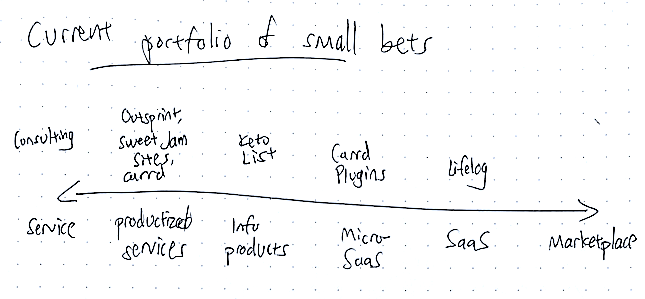 Current portfolio of small bets
Consulting
Outsprint,
Sweet Jam
Sites,
carrd
Keto
List
Carrd
Plugins
Lifelog
Service
productized
services
Info
products
Micro-
SaaS
SaaS
Marketplace